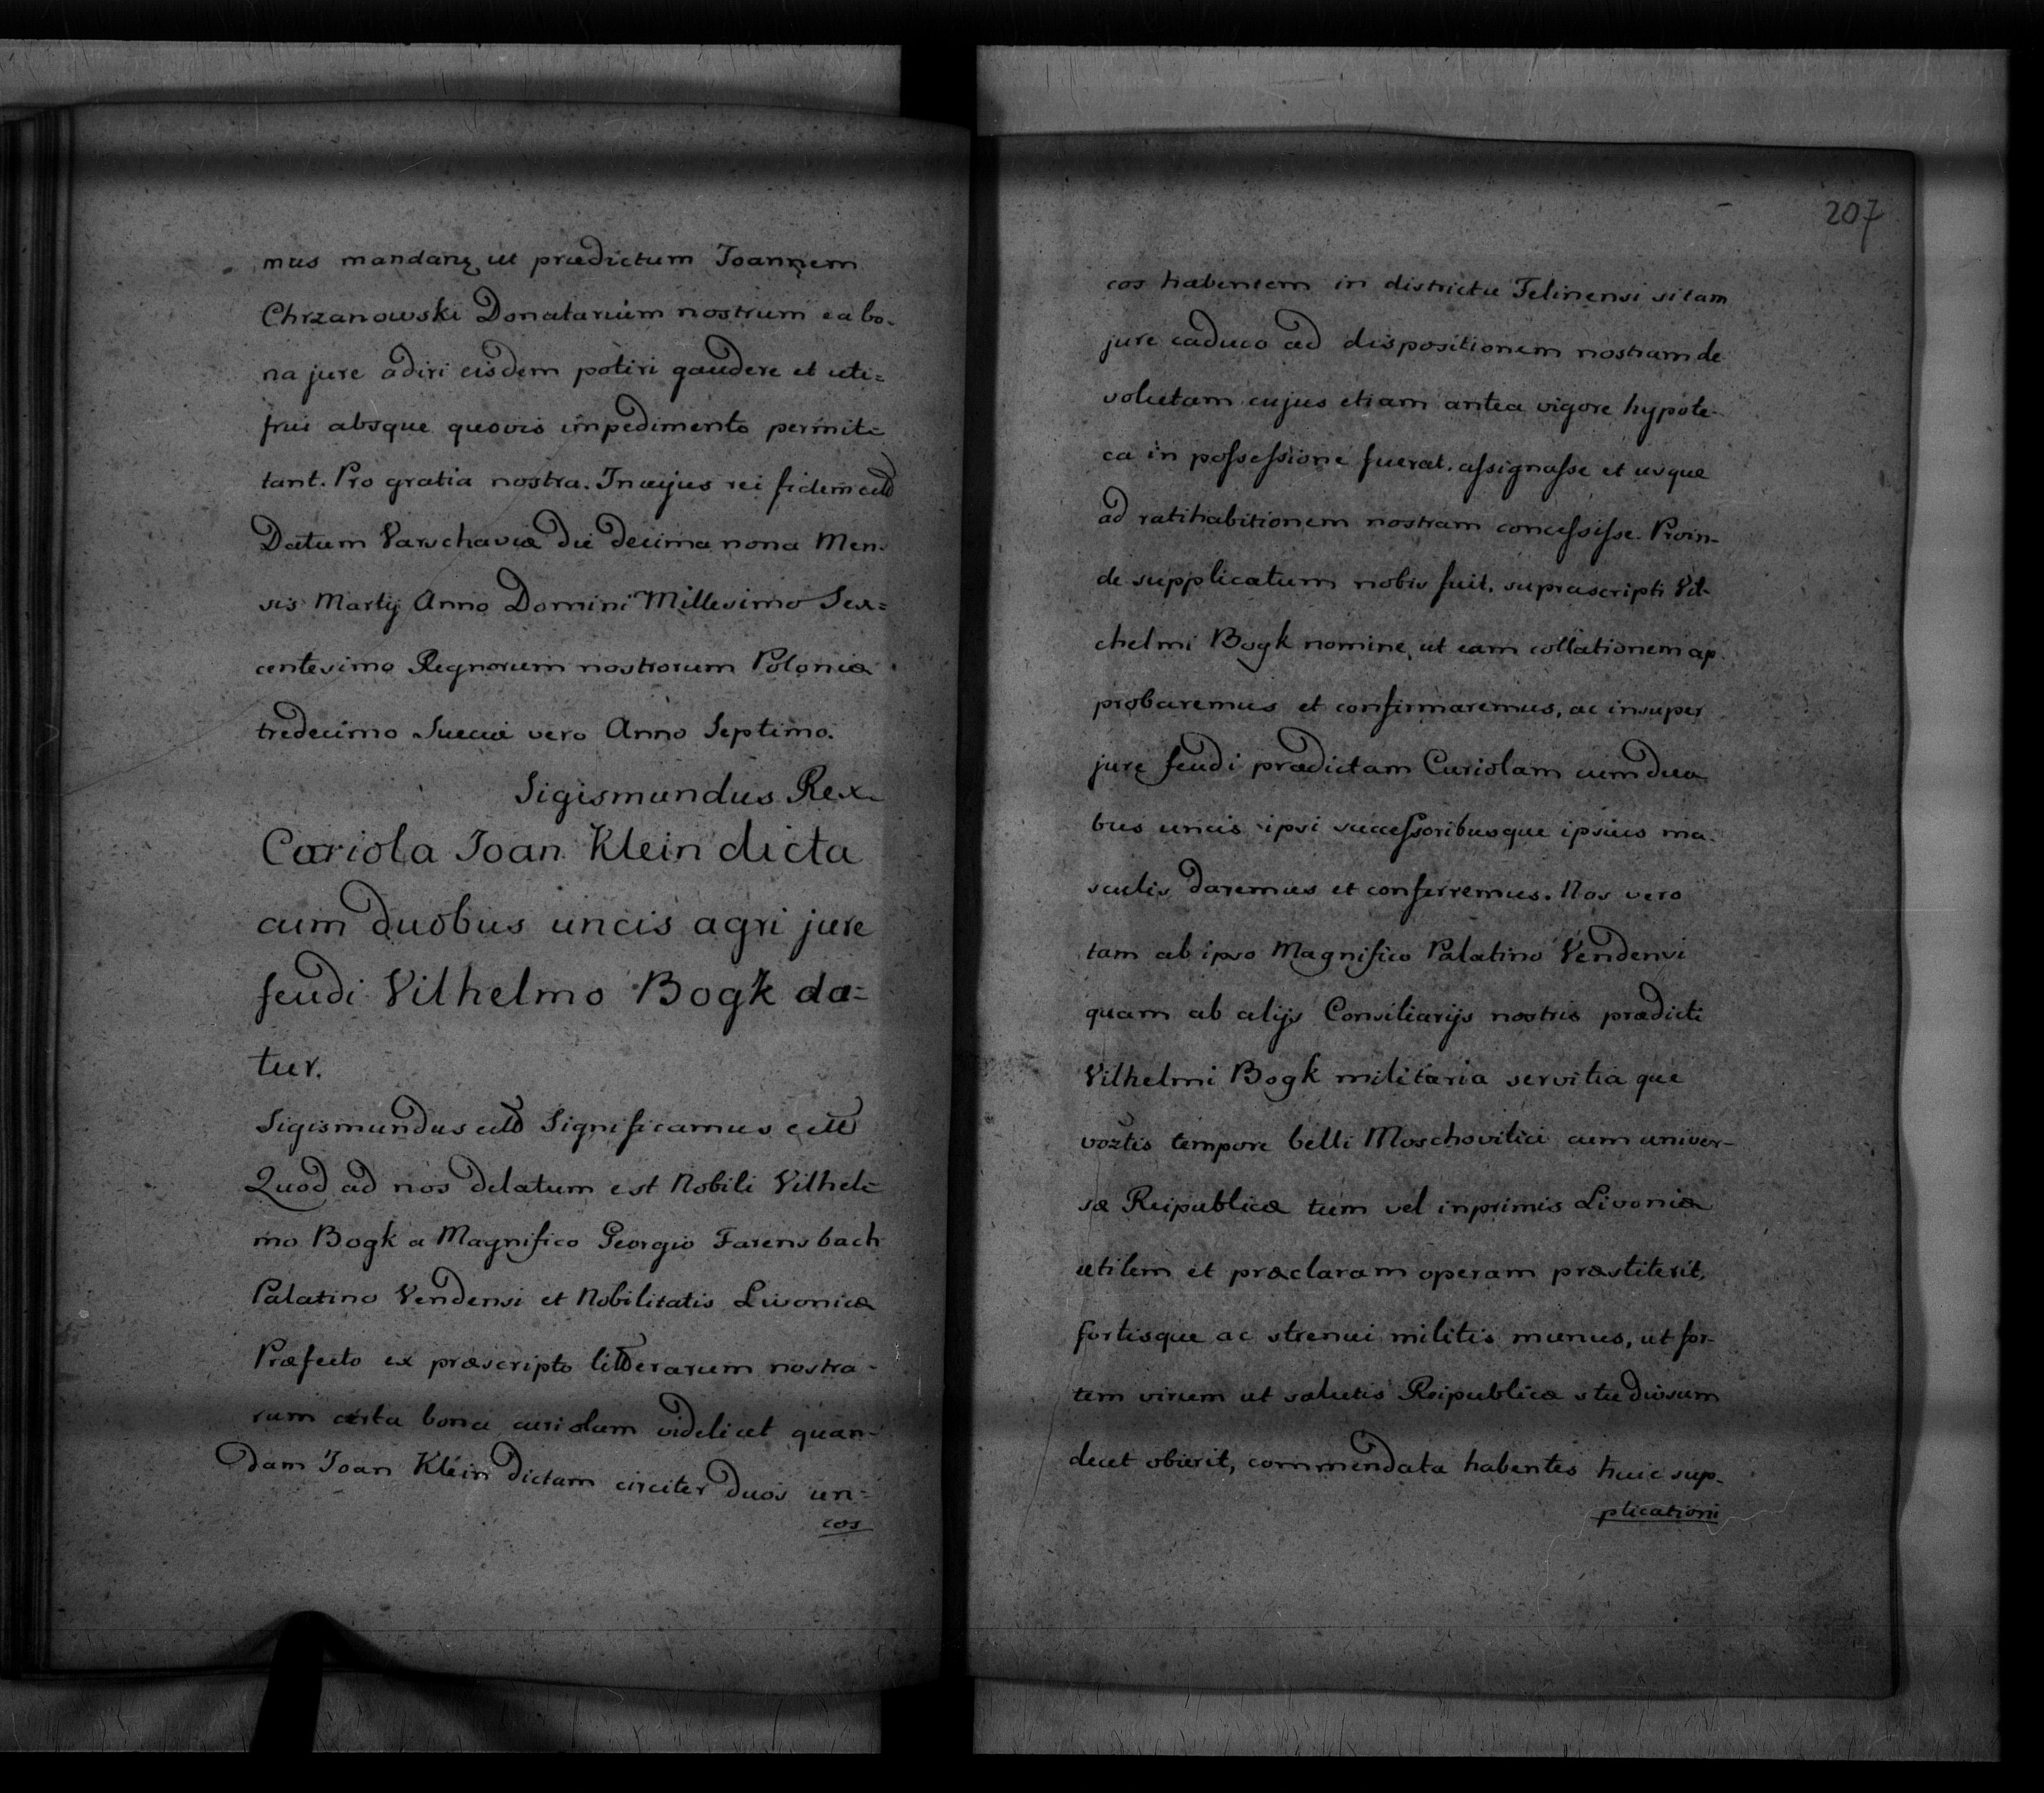 mus mandamꝫ ut prædictum Joannem
Chrzanowski Donatarium nostrum ea bo-
na jure adiri eisdem potiri gaudere et uti=
frui absque quovis impedimento permit=
tant. Pro gratia nostra. In cujus rei fidem ett
Datum Varschaviæ die decima nona Men-
sis Martij Anno Domini Millesimo Sex=
centesimo Regnorum nostrorum Poloniæ
tredecimo Sueciæ vero Anno Septimo.
Sigismundus Rex
Coriola Joan Klein dicta
cum duobus uncis agri jure
feudi Vilhelmo Bogk da=
tur.
Sigismundus ett Significamus ett
Quod ad nos delatum est Nobili Vilhel=
mo Bogk a Magnifico Georgio Farensbach
Palatino Vendensi et Nobilitatis Livonicæ
Præfecto ex præscripto litterarum nostra-
rum certa bona curiolam videlicet quan-
dam Joan Klein dictam circiter duos un=
cos
207
cos habentem in districtu Felinensi sitam
jure caduco ad dispositionem nostram de
volutam cujus etiam antea vigore hypote-
ca in possessione fuerat. assignasse et usque
ad ratihabitionem nostram concessisse. Proin-
de supplicatum nobis fuit. suprascripti Vil-
chelmi Bogk nomine, ut eam collationem ap
probaremus et confirmaremus, ac insuper
jure feudi prædictam Curiolam cum duo
bus uncis ipsi successoribusque ipsius ma-
sculis daremus et conferremus. Nos vero
tam ab ipso Magnifico Palatino Vendensi
quam ab alijs Consiliarijs nostris prædicti
Vilhelmi Bogk militaria servitia que
tempore belli Moschovitici cum univer-
sæ Reipublicæ tum vel inprimis Livoniæ
utilem et præclaram operam præstiterit,
fortisque ac strenui militis munus, ut for-
tem virum ut salutis Reipublicæ studiosum
decet obierit, commendata habentes huic sup-
plicationi